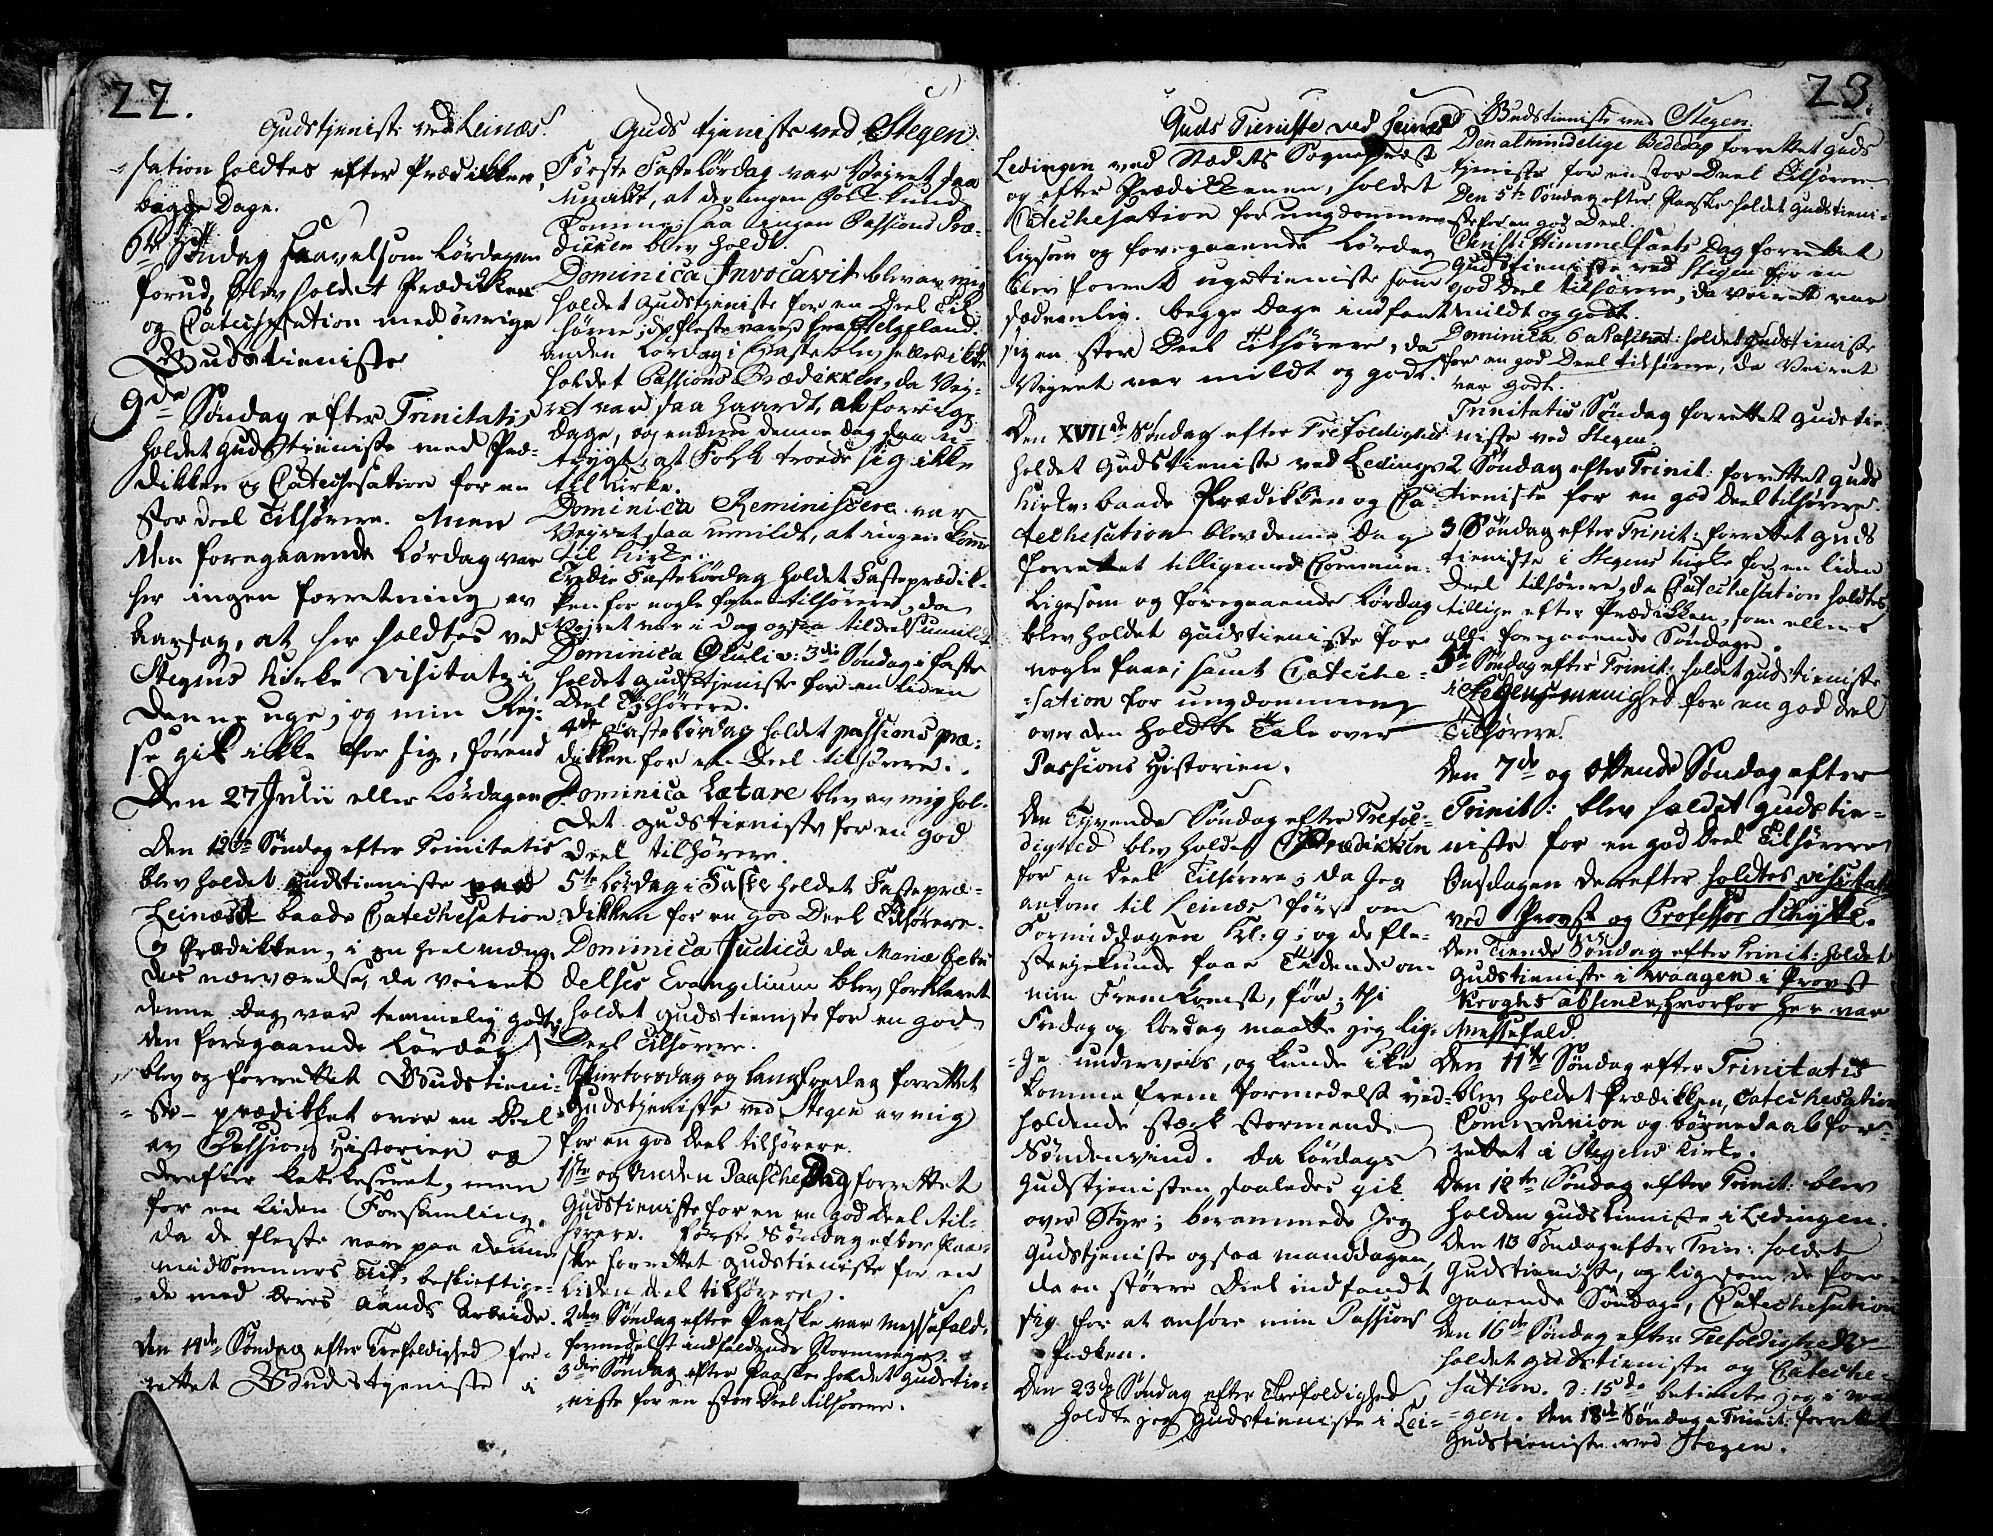 22.
Gudstjeniste ved Leinæs.
sation holdtes efter Prædikken
begge Dage.
6te Søndag saavelsom Lørdagen
forud, blev holdet Prædikken
og Catechesation med øvrige
Gudstieniste
9de Søndag efter Trinitatis
holdet Gudstieniste med Præ-
dikken og Catechesation for en
stor Deel Tilhørere. Men
den foregaaende Lørdag var
her ingen forretning av
aarsag, at her holdtes ved
Stegens Kirke Visitatz i
denne uge; og min Rej-
se gik ikke for sig, førend
Den 27 Julii eller Lørdagen
Den 12te Søndag efter Trinitatis
blev holdet Gudstieniste
Leinæs baade Catechesation
og Prædikken, i en heel mæng-
des nærværelse, da veiret
denne Dag var temmelig godt;
den foregaaende Lørdag
blev og forrettet Gudstieni-
ste - prædikket over en Deel
av Passions Historien og
derefter katekeseret, men
for en liden Forsamling,
da de fleste vare paa denne
midsommers Tid, beskieftige-
de med deres Aands Arbeide.
Den 14de Søndag efter Trefoldighed for-
rettet Gudstjeniste i
Guds tjeniste ved Stegen
Første Fastelørdag var Vejret saa
umildt, at der ingen Folk kunde
komme; saa ingen Passions Præ-
dikken blev holdt.
Dominica Invocavit blev av mig
holdet Gudstjeniste for en Deel Til-
hørere; de fleste vare fra Helgeland.
anden Lørdag i Faste blev heller ikke
holdet Passions Prædikken, da Vej-
ret var saa haardt, at forrige
Dage, og endnu denne Dag saa u-
trygt, at Folk troede sig ikke
til Kirke.
Dominica Reminiscere var
Vejret saa umildt, at ingen komme
til Kirke.
Tredie Fastelørdag holdet Fasteprædik-
ken for nogle faae tilhørere, da
Vejret var i Dag ogsaa tildeels umildt
Dominica Oculi v: 3die Søndag i Faste
holdet Gudstjeniste for en liden
Deel Tilhørere.
4de Fastelørdag holdet passions præ-
dikken for en Deel tilhørere.
Dominica Lætare blev av mig hol-
det Gudstieniste for en god
Deel tilhørere.
5te Lørdag i Faste holdet Fastepræ-
dikken for en god Deel Tilhørere.
Dominica Judica da Mariæ bebu
delses Evangelium blev forklaret
holdet Gudstieniste for en god
Deel Tilhørere.
Skiertorsdag og langfredag forrettet
Gudstjeniste ved Stegen av mig
for en god Deel tilhørere.
1ste og Anden Paaschedag forrettet
Gudstieniste for en en god Deel til-
hørere. Første Søndag efter Paa-
ske forrettet Gudstieniste for en
liden deel tilhørere.
2den Søndag efter Paaske var Messefald,
formedelst indfaldende Stormvejr.
3die Søndag efter Paaske holdet Gudstie-
niste for en stor Deel tilhørere.
23.
Guds Tieniste ved Leinæs
Ledingen ved Stædets Sognepræst
og efter Prædikkenen, holdet
Catechesation for ungdommen
ligsom og foregaaende Lørdag
blev forret ugetieniste som
sædvanlig. begge Dage indfant
sig en stor Deel Tilhørere, da
Vejret var mildt og godt.
Den XVIIde Søndag efter Trefoldighed
holdet Gudstieniste ved Ledings
Kirke: baade Prædikken og Ca-
techesation blev denne Dag
forrettet tilligemed Commun:
Ligesom og foregaaende Lørdag
blev holdet Gudstieniste for
nogle faae; samt Cateche-
sation for ungdommen
over den holdte Tale over
Passions Historien.
Den Tyvende Søndag efter Trefol-
dighed blev holdet Prædikken
for en Deel Tilhørere; da Jeg
ankom til Leinæs først om
Formiddagen Kl: 9; og de fle-
ste ej kunde faae Tidende om
min Fremkomst, før; thi
Fredag og Lørdag maatte jeg lig-
ge underveis, og kunde ikke
komme frem formedelst ved-
holdende stærk stormende
Søndenvind. Da Lørdags
Gudstjenisten saaledes gik
over Styr; berammede Jeg
Gudstjeniste ogsaa manddagen,
da en større Deel indfandt
sig for at anhøre min Passions
Prædken.
Den 23de Søndag efter Trefoldighed
holdte jeg Gudstieniste i Lei-
Gudstieniste ved Stegen.
Den almindelige Bededag forrettet Guds
tjeniste for en stor Deel Tilhørere.
Den 5te Søndag efter Paaske holdet Gudstieni-
ste for en god Deel.
Christi Himmelfarts Dag forrettet
Gudstieniste ved Stegen for en
god Deel tilhørere, da Veiret var
mildt og godt.
Dominica 6 a Paschat: holdet Gudstieniste
for en god Deel tilhørere, da Veiret
var godt.
Trinitatis Søndag forrettet Gudstie-
niste ved Stegen.
2 Søndag efter Trinit: forrettet Guds
tieniste for en god Deel tilhørere.
3 Søndag efter Trinit: forrettet Guds
tieniste i Stegens Kirke for en liden
Deel tilhørere, da Catechesation holdtes
tillige efter Prædikken, som ellers
alle foregaaende Søndage.
5te Søndag efter Trinit: holdet Gudstieniste
i Stegens menighed for en god Deel
Tilhørere.
Den 7de og Ottende Søndag efter
Trinit: blev holdet Gudstie-
niste for en god Deel Tilhørere
Onsdagen derefter holdtes visitatz
ved Provst og Professor Schytte.
Den Tiende Søndag efter Trinit: holdet
Gudstieniste i Waagen i Provst
Kroghs absence, hvorfor her var
Messefald.
Den 11te Søndag efter Trinitatis
blev holdet Prædikken, Catechesation
Communion og børnedaab for-
rettet i Stegens Kirke.
Den 12te Søndag efter Trinit: blev
holden Gudstieniste i Ledingen.
Den 13 Søndag efter Trin: holdet
Gudstieniste, og ligesom de fore-
gaaende Søndage, Catechesation
Den 16de Søndag efter Trefoldighed
holdet Gudstieniste og Cateche-
sation. d: 15de betiente jeg i Waa
gen. Den 18de Søndag e Trinit: forrettet
Gudstieniste ved Stegen.